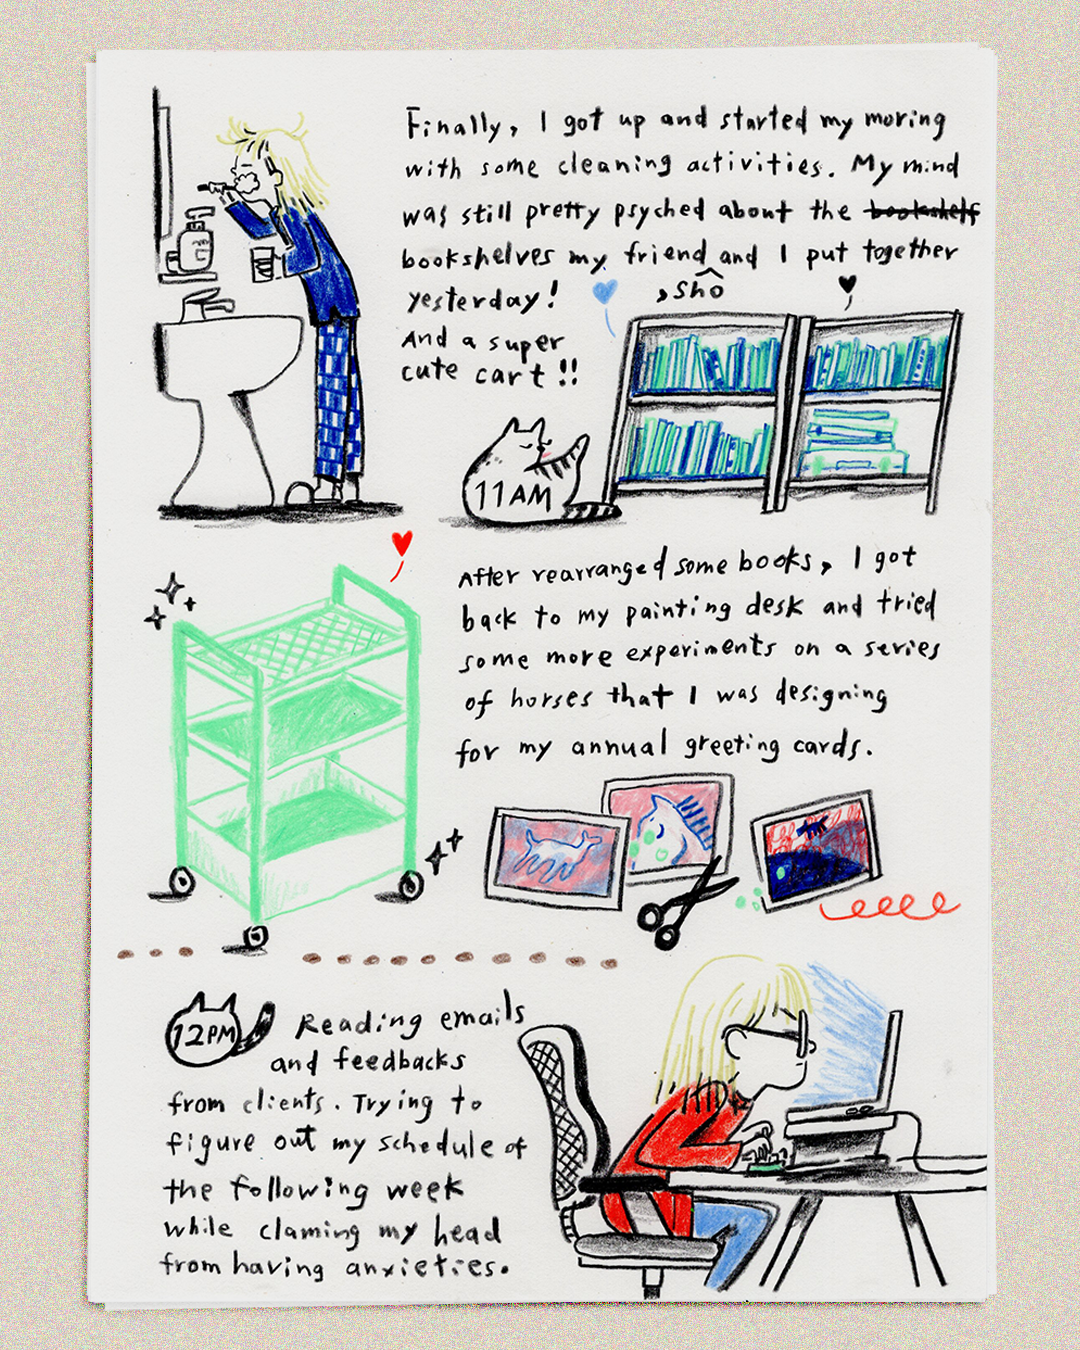 Finally, I got up and started my moring
with some cleaning activities. My mind
was still pretty psyched about the bookshelf
bookshelves my friend and I put together
, Sho
yesterday!
And a super
cute cart!!
11AM
After rearranged some books, I got
back to my painting desk and tried
some more experiments on a series
of horses that I was designing
for my annual greeting cards.
12PM
Reading emails
and feedbacks
from clients. Trying to
figure out my schedule of
the following week
while claming my head
from having anxieties.